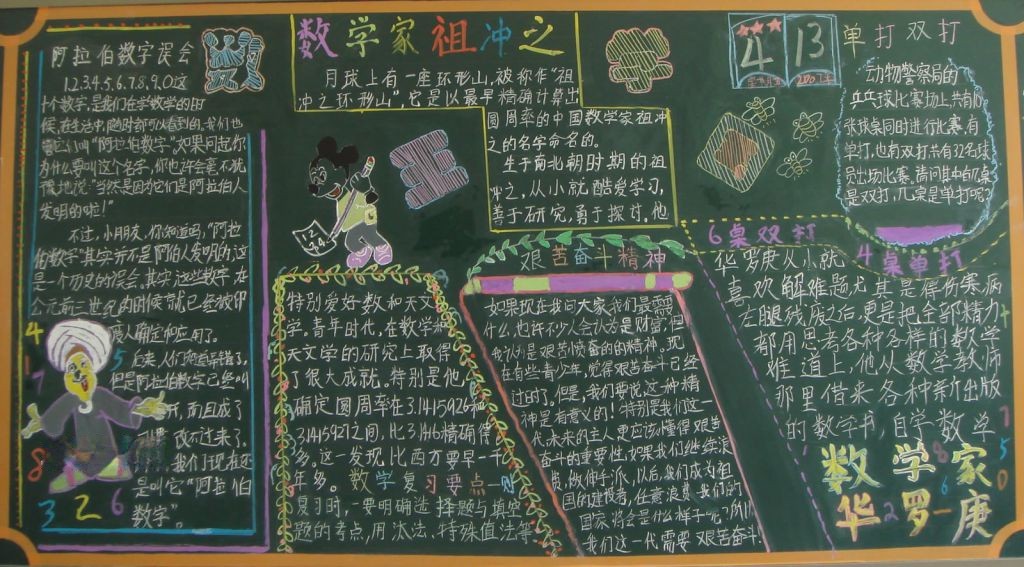 阿拉伯数字误会
1.2.3.4.5.6.7.8.9.0这
十个数字,是我们在学数学的时
候,在生活中,随时都可以看到的。我们也
管它们叫"阿拉伯数字"。如果问起你
为什么要叫这个名字,你也许会毫不犹
豫地说:"当然是因为它们是阿拉伯人
发明的啦!"
不过,小朋友,你知道吗,"阿拉
伯数字"其实并不是阿伯人发明的,这
是一个历史的误会。其实,这些数字,在
公元前三世纪的时候就已经被印
度人确定和应用了。
后来,人们知道弄错了,
但是阿拉伯数字已经叫
开,而且成了
改不过来了。
我们现在还
是叫它"阿拉伯
数字"。
4
1
7
5
8
3 2 6
数学家祖冲之
月球上有一座环形山,被称作"祖
冲之环形山",它是以最早精确计算出
圆周率的中国数学家祖冲
之的名字命名的。
生于南北朝时期的祖
冲之,从小就酷爱学习,
善于研究,勇于探讨,他
特别爱好数和天文
学。青年时代,在数学和
天文学的研究上取得
了很大成就。特别是他
确定圆周率在3.1415926和
3.1415927之间,比3.146精确得
多。这一发现,比西方要早一千
年多。数学复习要点—时
复习时,一要明确选择题与填空
题的考点,用汰法、特殊值法等
艰苦奋斗精神
如果现在我问大家,我们最需要
什么,也许不少人会认为是财富,但
我认为是艰苦愤奋的的精神。现
在有些青少年,觉得艰苦奋斗已经
过时了,但是,我们要说这种精
神是有意义的!特别是我们这一
代,未来的主人,更应该懂得艰苦
奋斗的重要性,如果我们继续浪
费,做伸手派,以后,我们成为祖
国的建设者,任意浪费,我们的
国家将会是什么样子呢?所以
我们这一代需要艰苦奋斗.
4 13
单打双打
动物警察局的
乒乓球比赛场上,共有10
张球桌同时进行比赛,有
单打,也有双打,共有32名球
员出场比赛,请问其中的几桌
是双打,几桌是单打呢?
6桌双打
4桌单打
华罗庚从小就
喜欢解难题尤其是得伤寒病
左腿残废之后,更是把全部精力
都用思考各种各样的数学
难道上,他从数学教师
那里借来各种新出版
的数学书,自学数学
数学家
华罗庚